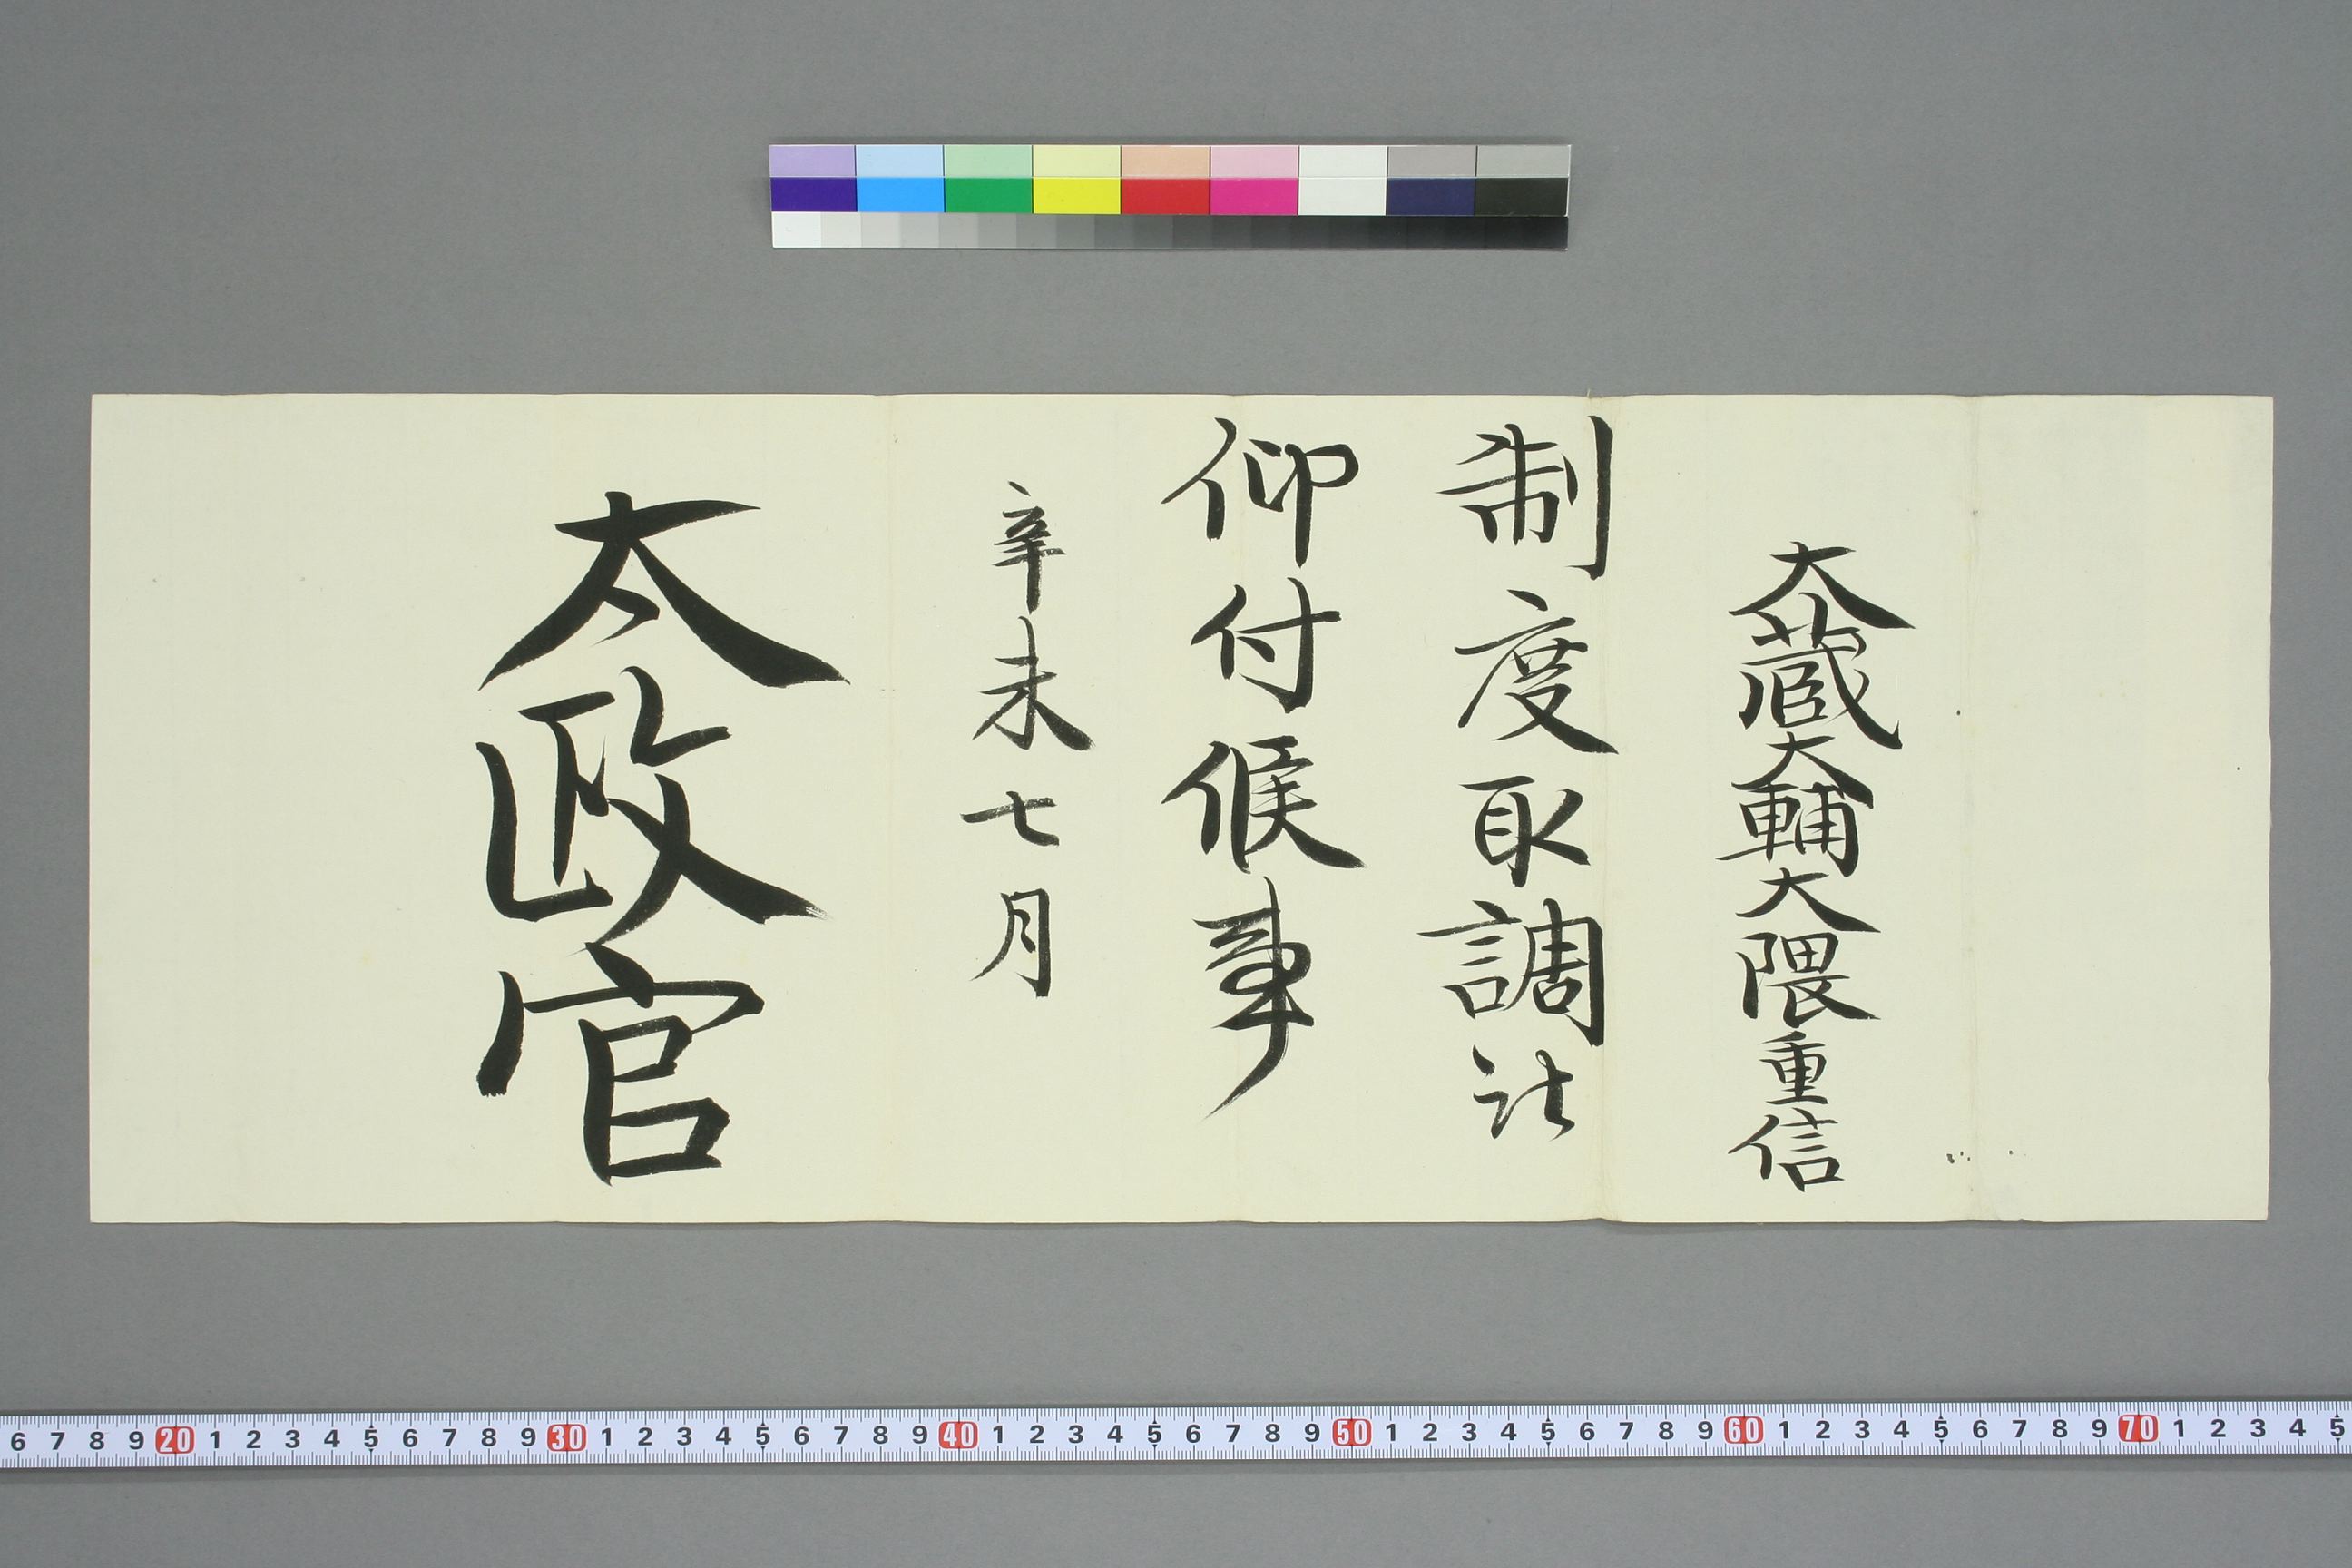 大蔵大輔大隈重信
制度取調被
仰付候事
辛未七月
太政官
6 7 8 9 20 1 2 3 4 5 6 7 8 9 30 1 2 3 4 5 6 7 8 9 40 1 2 3 4 5 6 7 8 9 50 1 2 3 4 5 6 7 8 9 60 1 2 3 4 5 6 7 8 9 70 1 2 3 4 5